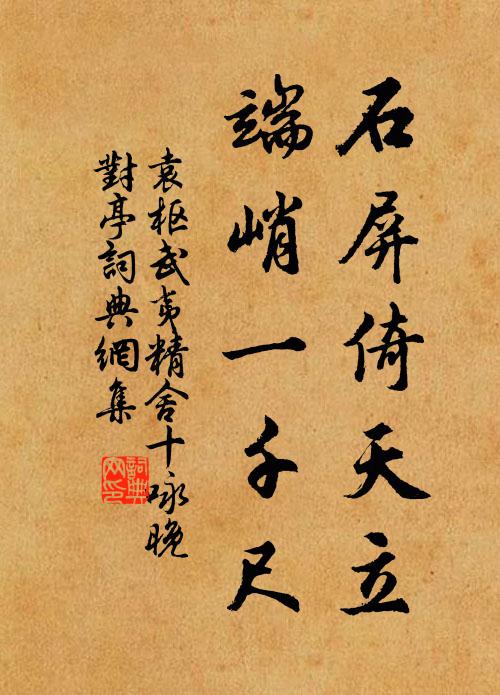 石屏倚天立
端峭一千尺
袁枢武夷精舍十咏晚
對亭詞典網集
詞典
网印